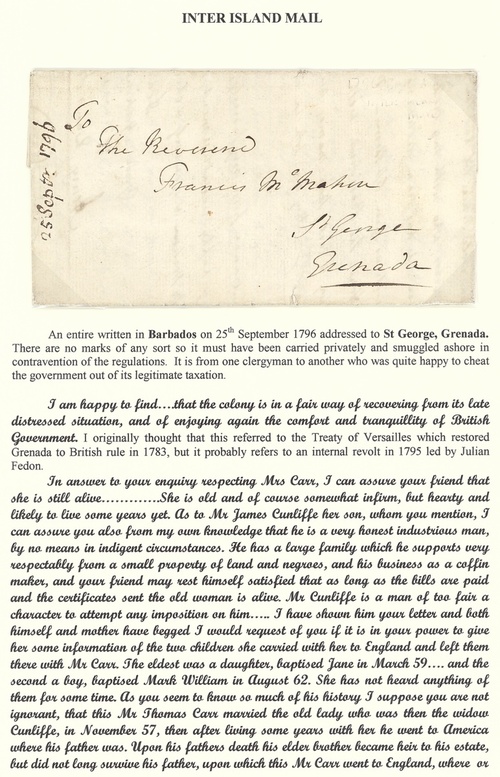 INTER ISLAND MAIL
25 Septr. 1796
To
The Reverend
Francis Mc Mahon
St George
Grenada
An entire written in Barbados on 25th September 1796 addressed to St George, Grenada.
There are no marks of any sort so it must have been carried privately and smuggled ashore in
contravention of the regulations. It is from one clergyman to another who was quite happy to cheat
the government out of its legitimate taxation.
I am happy to find....that the colony is in a fair way of recovering from its late
distressed situation, and of enjoying again the comfort and tranquillity of British
Government. I originally thought that this referred to the Treaty of Versailles which restored
Grenada to British rule in 1783, but it probably refers to an internal revolt in 1795 led by Julian
Fedon.
In answer to your enquiry respecting Mrs Carr, I can assure your friend that
she is still alive.............She is old and of course somewhat infirm, but hearty and
likely to live some years yet. As to Mr James Cunliffe her son, whom you mention, I
can assure you also from my own knowledge that he is a very honest industrious man,
by no means in indigent circumstances. He has a large family which he supports very
respectably from a small property of land and negroes, and his business as a coffin
maker, and your friend may rest himself satisfied that as long as the bills are paid
and the certificates sent the old woman is alive. Mr Cunliffe is a man of too fair a
character to attempt any imposition on him..... I have shown him your letter and both
himself and mother have begged I would request of you if it is in your power to give
her some information of the two children she carried with her to England and left them
there with Mr Carr. The eldest was a daughter, baptised Jane in March 59.... and the
second a boy, baptised Mark William in August 62. She has not heard anything of
them for some time. As you seem to know so much of his history I suppose you are not
ignorant, that this Mr Thomas Carr married the old lady who was then the widow
Cunliffe, in November 57, then after living some years with her he went to America
where his father was. Upon his fathers death his elder brother became heir to his estate,
but did not long survive his father, upon which this Mr Carr went to England, where or